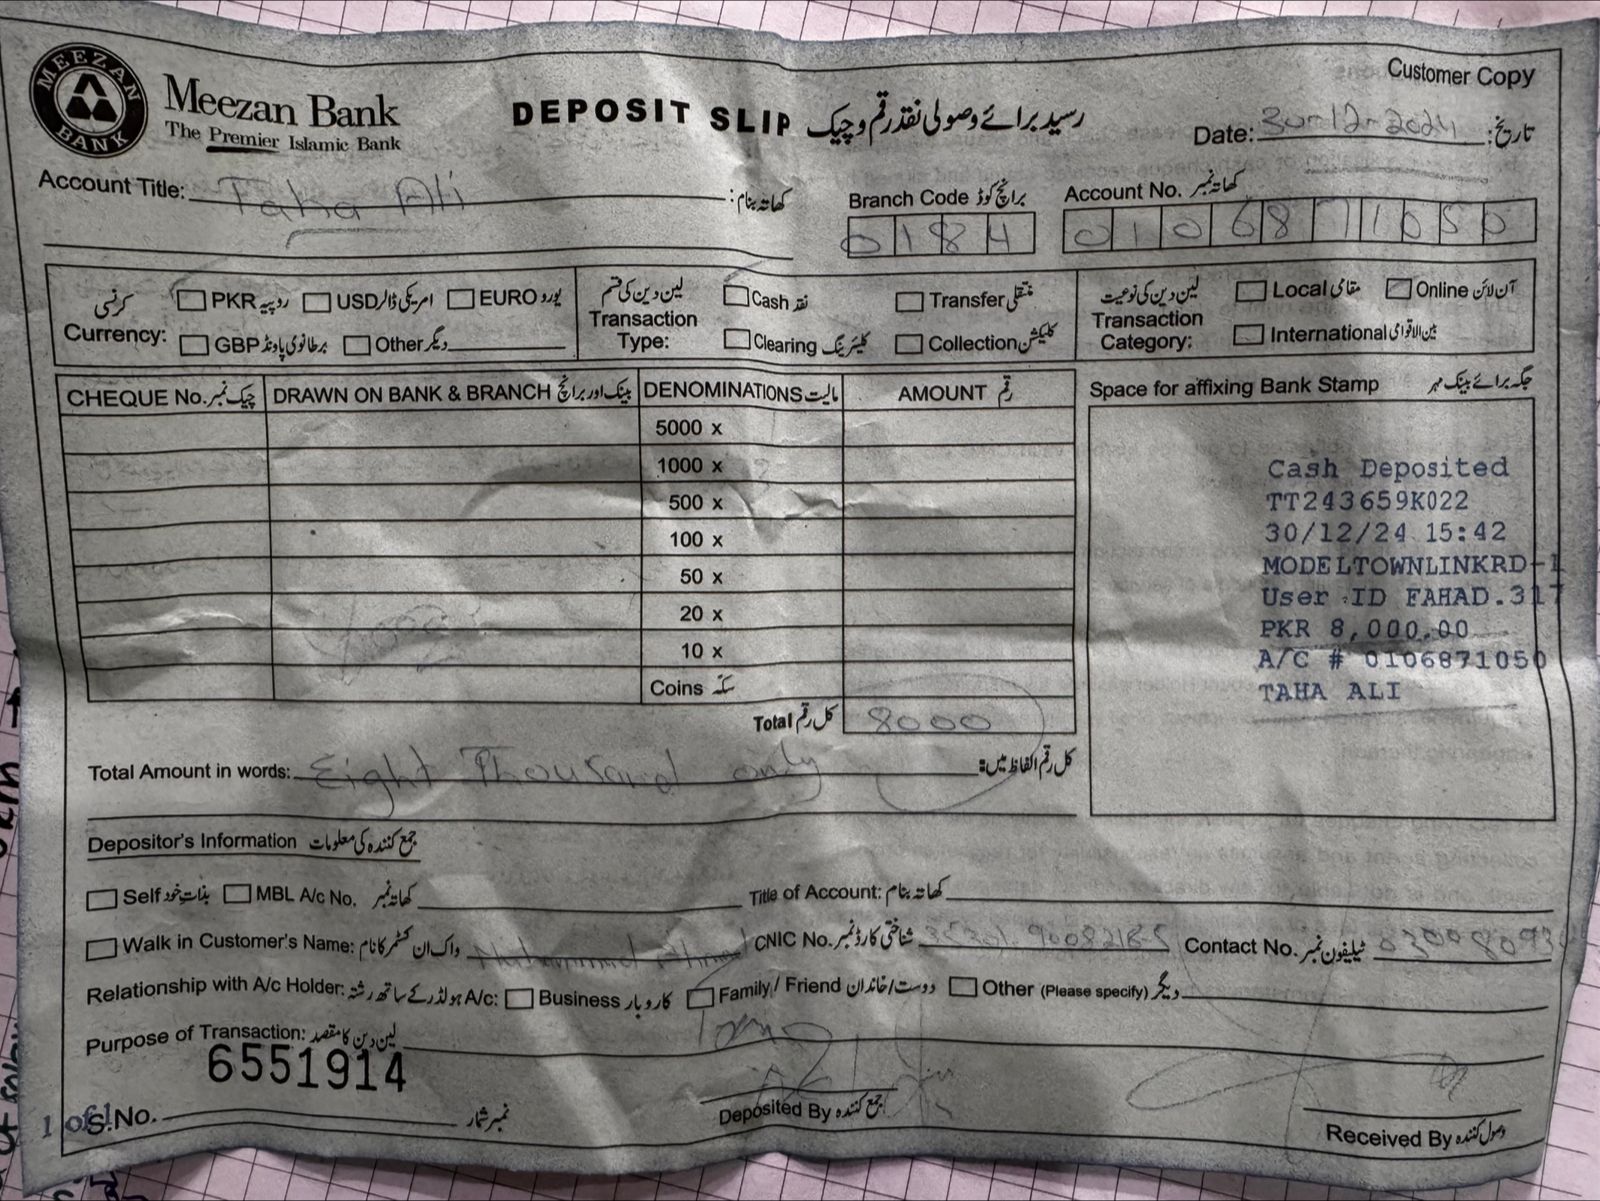 MEEZAN BANK
Meezan Bank
The Premier Islamic Bank
DEPOSIT SLIP رسید برائے وصولی نقد رقم و چیک
Customer Copy
Date: 30-12-2024 تاریخ:
Account Title: Taha Ali کھاتہ بنام:
Branch Code برانچ کوڈ
0184
Account No. کھاتہ نمبر
0106871050
کرنسی
Currency:
PKR روپیہ USD امریکی ڈالر EURO یورو
GBP برطانوی پاونڈ Other دیگر
لین دین کی قسم
Transaction
Type:
Cash نقد Transfer منتقلی
Clearing کلیئرنگ Collection کلیکشن
لین دین کی نوعیت
Transaction
Category:
Local مقامی Online آن لائن
International بین الاقوامی
CHEQUE No. چیک نمبر DRAWN ON BANK & BRANCH بینک اور برانچ DENOMINATIONS مالیت AMOUNT رقم
5000 x
1000 x
500 x
100 x
50 x
20 x
10 x
Coins سکہ
Total کل رقم 8000
Space for affixing Bank Stamp جگہ برائے بینک مہر
Cash Deposited
TT243659K022
30/12/24 15:42
MODELTOWNLINKRD-1
User ID FAHAD.317
PKR 8,000.00
A/C # 0106871050
TAHA ALI
Total Amount in words: Eight Thousand only کل رقم الفاظ میں:
Depositor's Information جمع کنندہ کی معلومات
Self بذات خود MBL A/c No. کھاتہ نمبر Title of Account: کھاتہ بنام:
Walk in Customer's Name: واک ان کسٹمر کا نام: Muhammad CNIC No. شناختی کارڈ نمبر Contact No. ٹیلیفون نمبر
Relationship with A/c Holder: اکاونٹ ہولڈر کے ساتھ رشتہ A/c: Business کاروبار Family / Friend دوست/خاندان Other (Please specify) دیگر
Purpose of Transaction: لین دین کا مقصد:
6551914
1 of 1
S.No. نمبر شمار
Deposited By جمع کنندہ
Received By وصول کنندہ